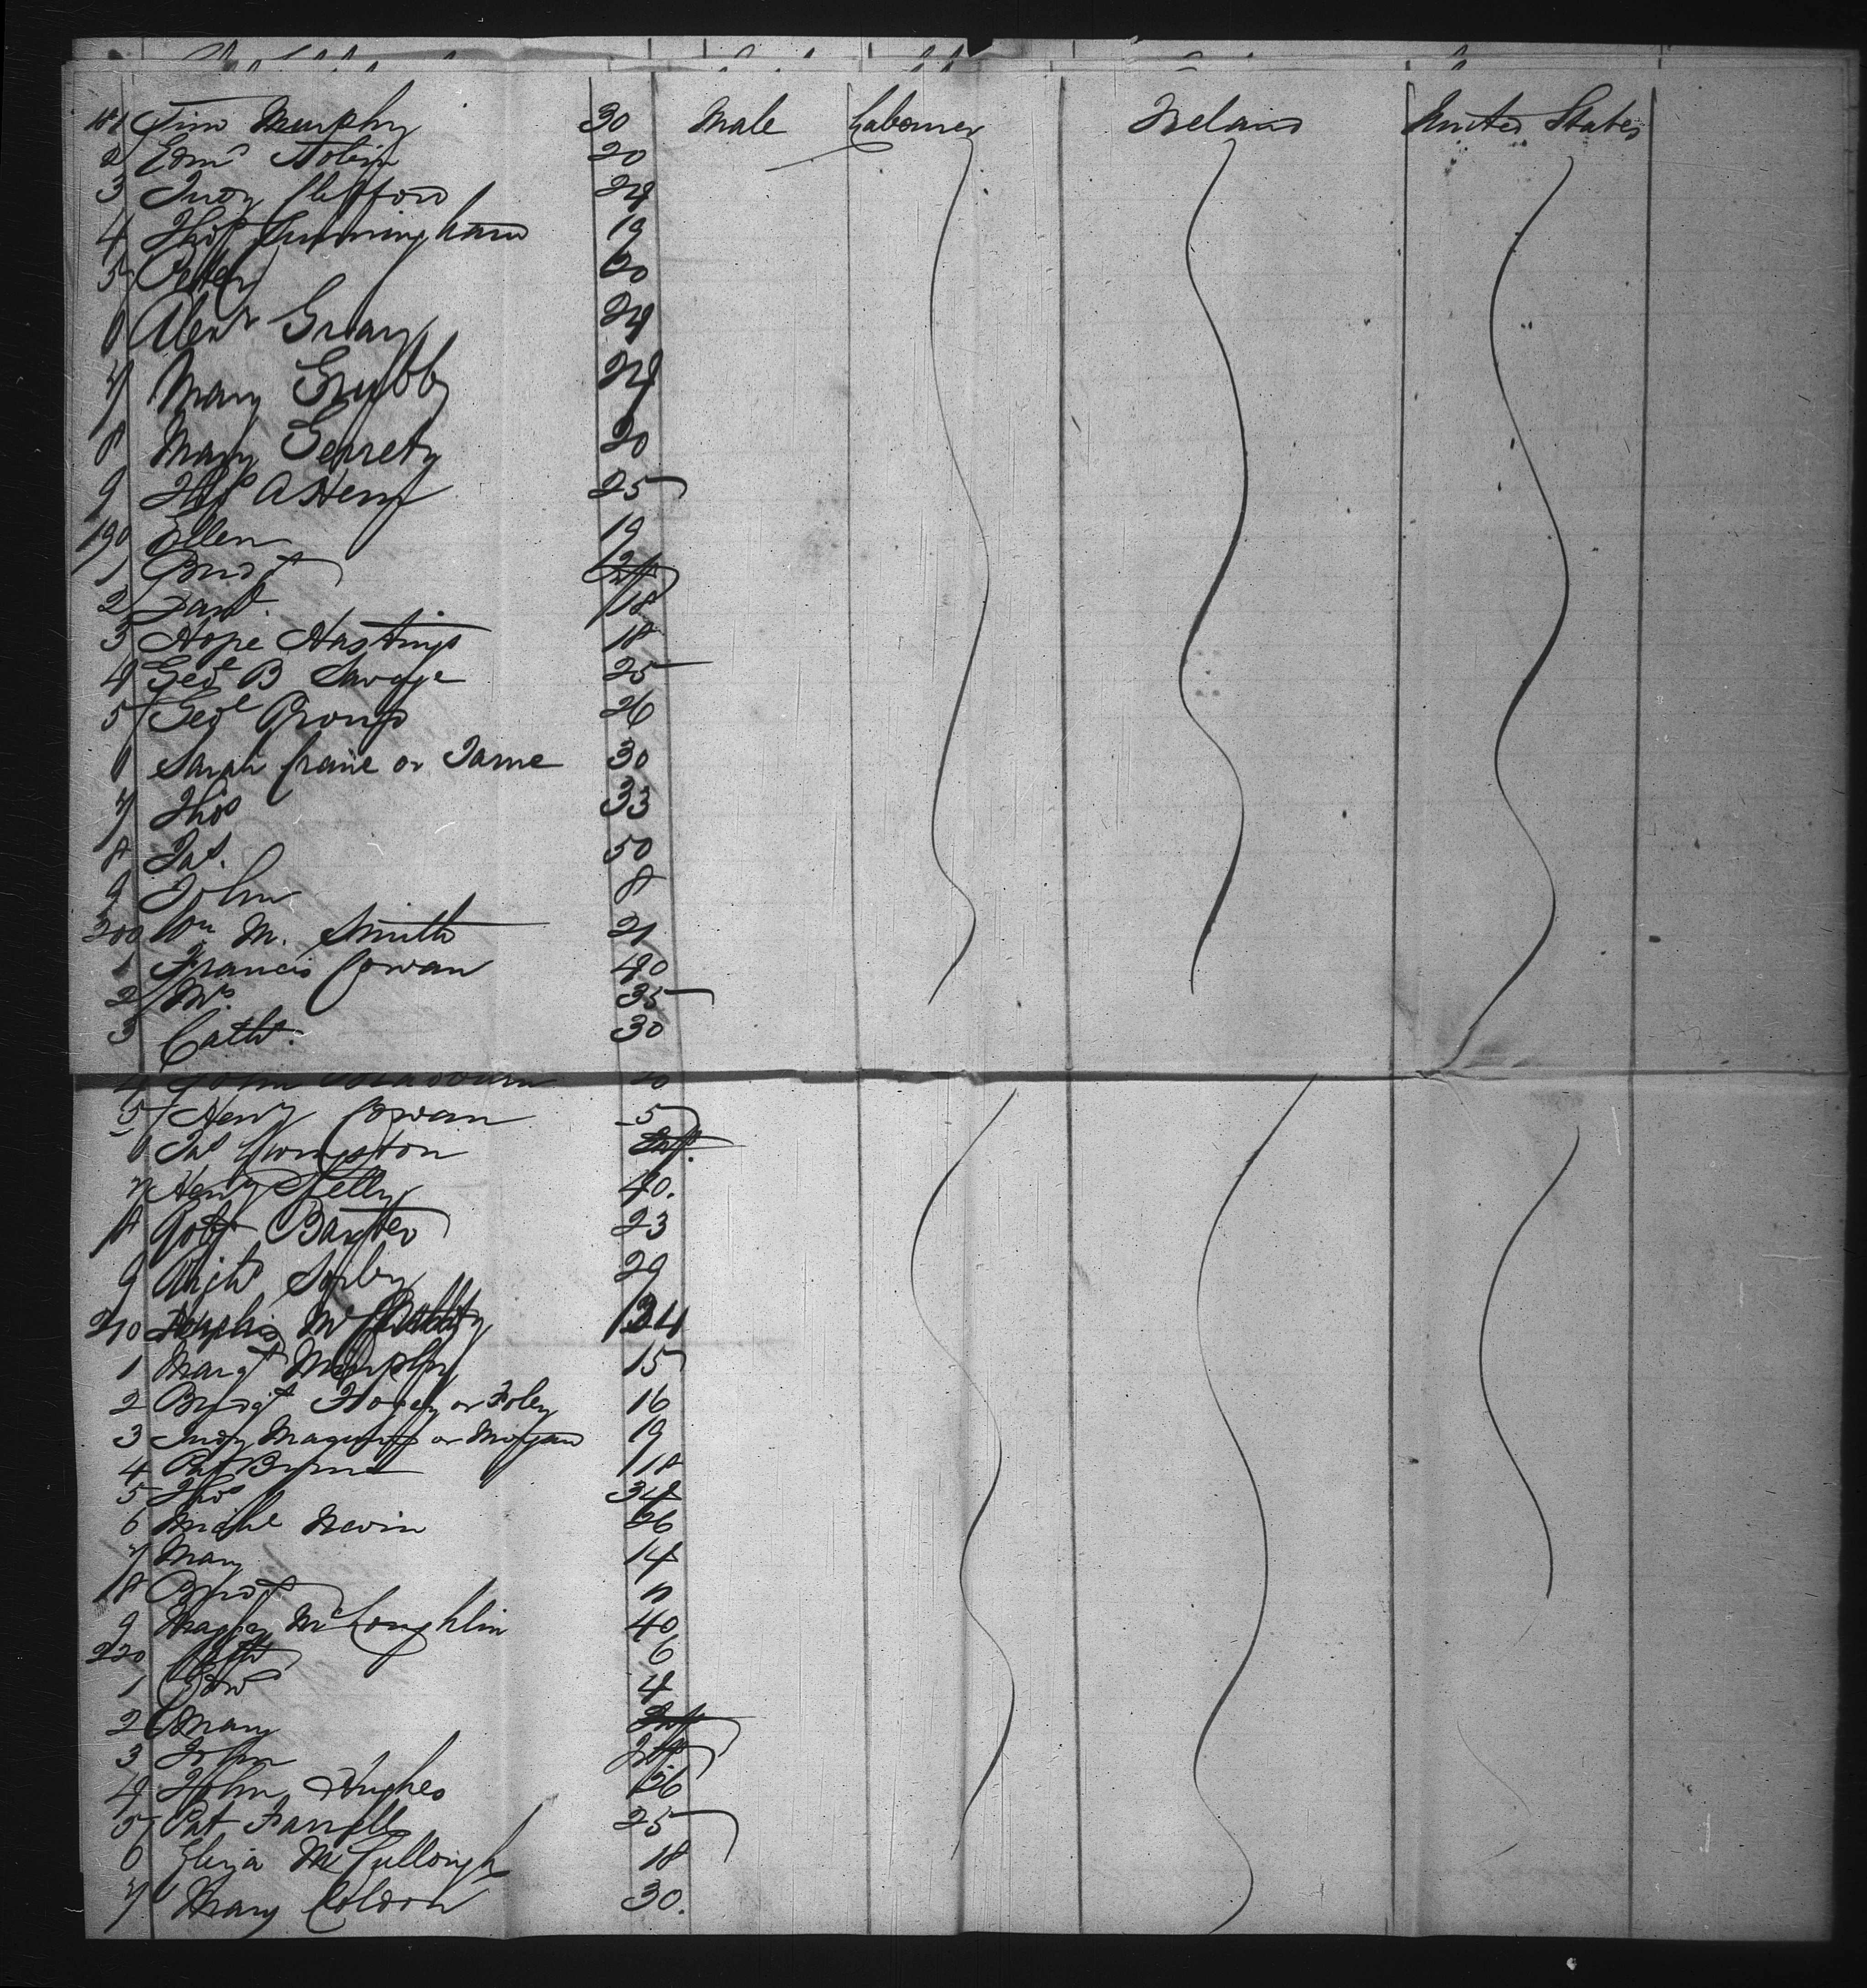 181 Tim Murphy 30 Male Labourer Ireland United States
2 Edmd Tobin 20
3 Judy Clifford 24
4 Thos Cunningham 19
5 Peter 20
6 Alexr Gray 24
7 Mary Grubb 24
8 Mary Gerrety 20
9 Thos 25
190 Ellen 19
1 Bridt Inft
2 18
3 Hope Hastings 18
4 Geoe B Savage 25
5 Geoe 26
6 Sarah Crane or Jame 30
7 Thos 33
8 Jas. 50
9 John 8
200 Wm M. Smith 21
1 Francis Cowan 40
2 Mrs. 35
3 Cathe. 30
4 John 20
5 Heny Cowan 5
6 Jas Livingston Inft.
7 Heny Kelly 40.
8 Robt Baxter 23
9 29
210 Mc 34
1 Margt Murphy 15
2 Bridgt or Foley 16
3 Judy or Morgan 19
4 Pat Byrne 18
5 Thos 34
6 Michl Nevin 26
7 Mary 14
18 Bridt 11
9 McLoughlin 40
220 Cath 6
1 Edwd 4
2 Mary Inft
3 John Inft
4 John Hughes 26
5 Pat Farrell 25
6 Eliza McCullough 18
7 Mary 30.